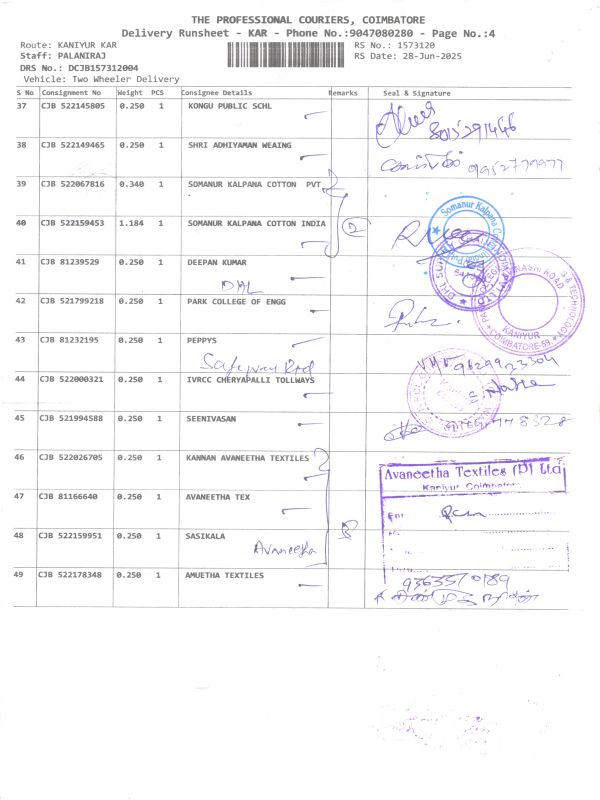 THE PROFESSIONAL COURIERS, COIMBATORE
Delivery Runsheet - KAR - Phone No.:9047080280 - Page No.:4
Route: KANIYUR KAR RS No.: 1573120
Staff: PALANIRAJ RS Date: 28-Jun-2025
DRS No.: DCJB157312004
Vehicle: Two Wheeler Delivery
S No Consignment No Weight PCS Consignee Details Remarks Seal & Signature
37 CJB 522145805 0.250 1 KONGU PUBLIC SCHL
38 CJB 522149465 0.250 1 SHRI ADHIYAMAN WEAING
39 CJB 522067816 0.340 1 SOMANUR KALPANA COTTON PVT
40 CJB 522159453 1.184 1 SOMANUR KALPANA COTTON INDIA
41 CJB 81239529 0.250 1 DEEPAN KUMAR
DHL
42 CJB 521799218 0.250 1 PARK COLLEGE OF ENGG
KANIYUR
COIMBATORE-59
43 CJB 81232195 0.250 1 PEPPYS
44 CJB 522000321 0.250 1 IVRCC CHERYAPALLI TOLLWAYS
45 CJB 521994588 0.250 1 SEENIVASAN
46 CJB 522026705 0.250 1 KANNAN AVANEETHA TEXTILES
Avaneetha Textiles (P) Ltd
Kaniyur Coimbatore
47 CJB 81166640 0.250 1 AVANEETHA TEX
48 CJB 522159951 0.250 1 SASIKALA
Avaneetha
49 CJB 522178348 0.250 1 AMUETHA TEXTILES
9363570189